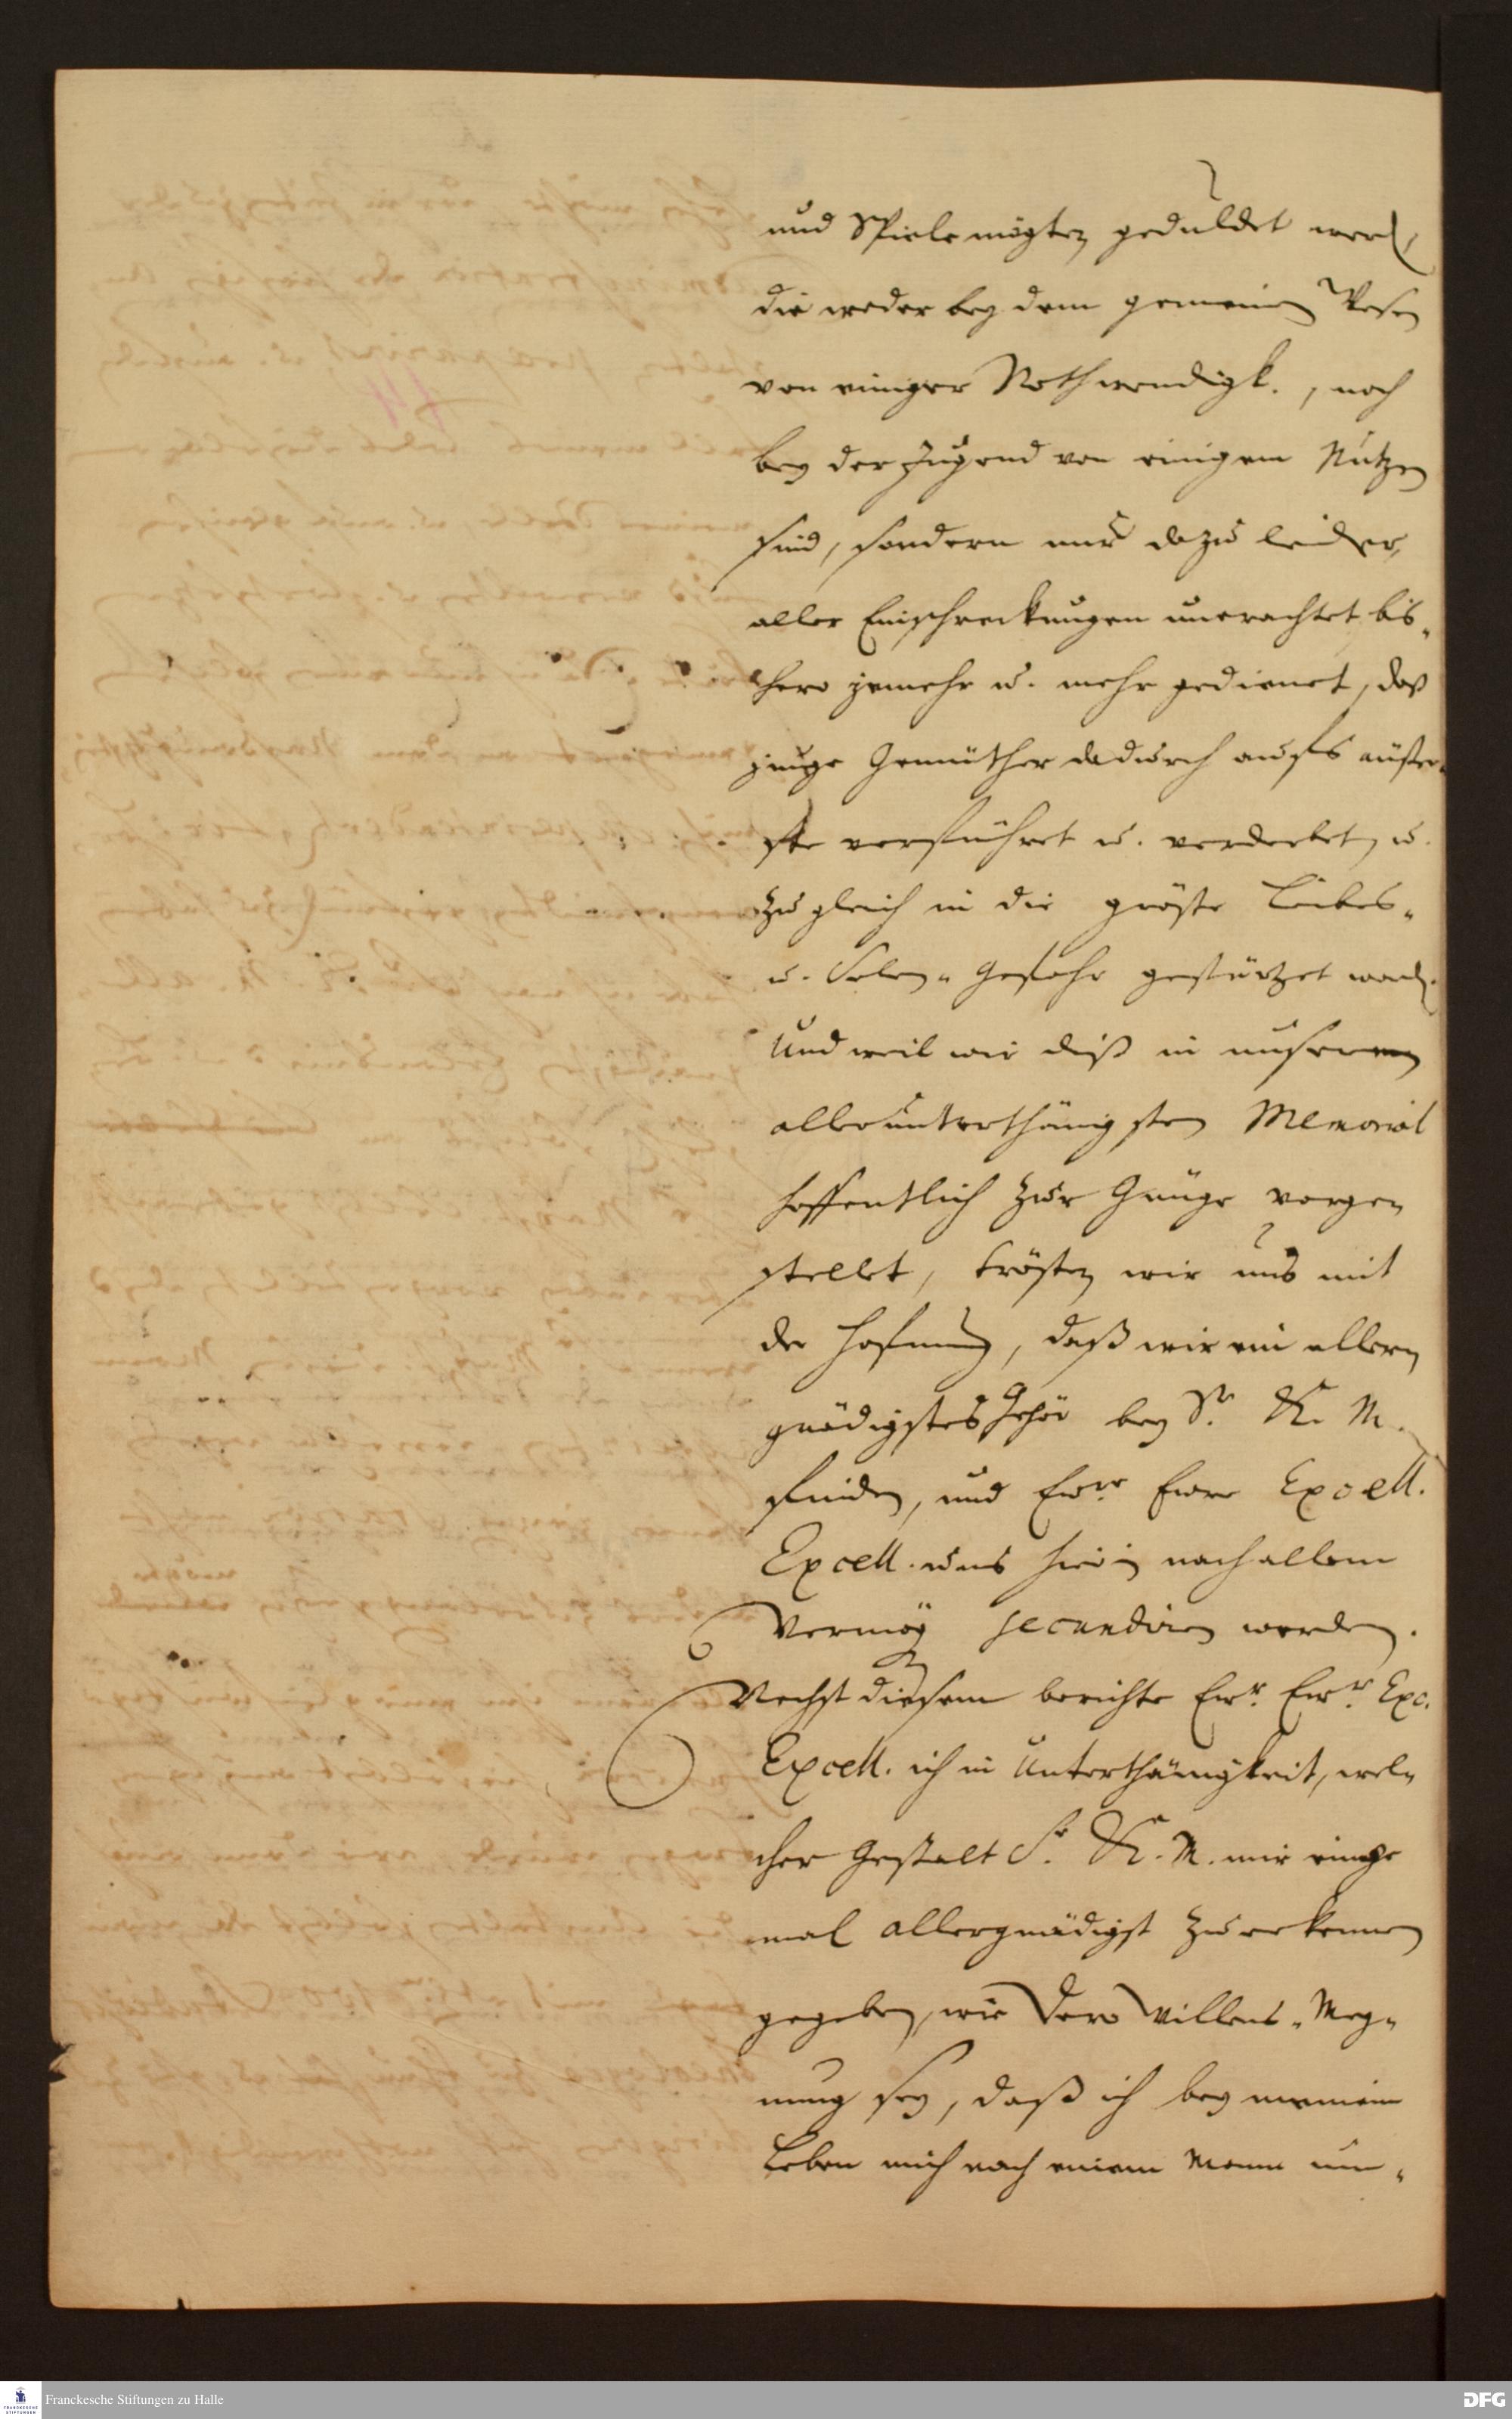 und Spiele mögten geduldet werd,
die weder bey dem gemeinen Wesen
von einiger Nothwendigk., noch
bey der Jugend von einigem Nutzen
sind, sondern nur dazu leider,
aller Einschrenkungen unerachtet bis-
hero jemehr u. mehr gedienet, daß
junge Gemüther dadurch aufs äußer-
ste verführet u. verderbet, u.
zu gleich in die größte Leibes-
u. Selen-Gefahr gestürtzet werd.
Und weil wir diß in unserem
allerunterthänigsten Memorial
hoffentlich zur Gnüge vorge-
stellet, trösten wir uns mit
der Hofnung, daß wir ein aller-
gnädigstes Gehör bey Sr. K. M.
finden, und Ewre Ewre Excell.
Excell. uns hierin nach allem
Vermög secundiren werden.
Nechst diesem berichte Ewr. Ewr. Exc.
Excell. ich in Unterthänigkeit, wel-
cher Gestalt Sr. K. M. mir einge
mal allergnädigst zu erkennen
gegeben, wie Dero Willens-Mey-
nung sey, daß ich bey meinem
Leben mich nach einem Mann um-
Franckesche Stiftungen zu Halle
FRANCKESCHE STIFTUNGEN
DFG